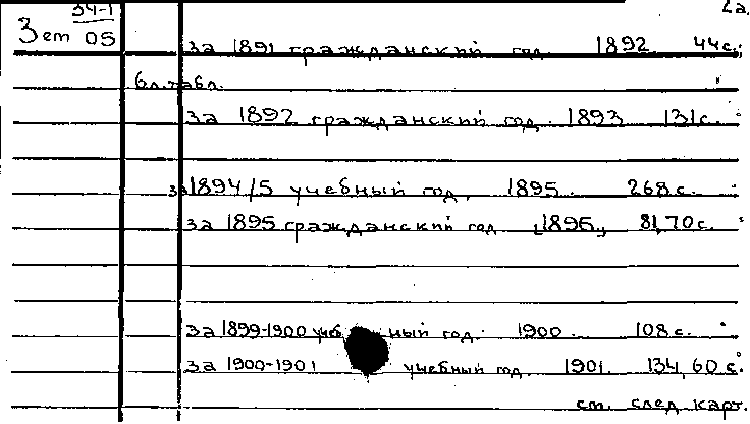 34-1 2а.
Зет 05
за 1891 гражданский год. 1892. 44с.;
6л.табл.
за 1892 гражданский год. 1893 131с.
за 1894/5 учебный год, 1895. 268с.
за 1895 гражданский год [1896], 81,70с.
за 1899-1900 учеб ный год. 1900. 108с.
за 1900-1901 учебный год. 1901. 134,60 с.
см. след. карт.